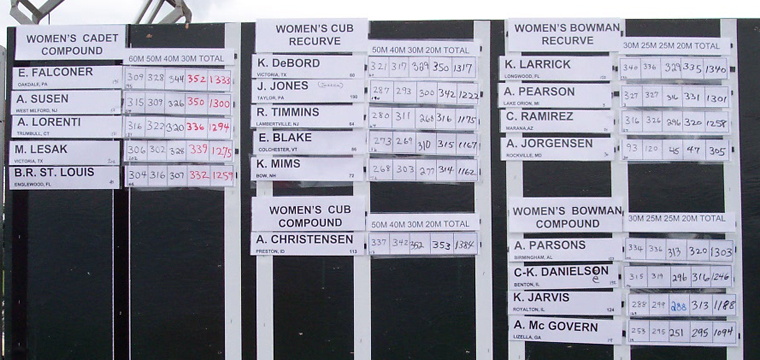 WOMEN'S CADET
COMPOUND
60M 50M 40M 30M TOTAL
E. FALCONER 309 328 344 352 1333
OAKDALE, PA
A. SUSEN 315 309 326 350 1300
WEST MILFORD, NJ
A. LORENTI 316 322 320 336 1294
TRUMBULL, CT
M. LESAK 306 302 328 339 1275
VICTORIA, TX
B.R. ST. LOUIS 304 316 307 332 1259
ENGLEWOOD, FL
WOMEN'S CUB
RECURVE
50M 40M 30M 20M TOTAL
K. DeBORD 321 317 329 350 1317
VICTORIA, TX
J. JONES 287 293 300 342 1222
TAYLOR, PA
R. TIMMINS 280 311 268 316 1175
LAMBERTVILLE, NJ
E. BLAKE 273 269 310 315 1167
COLCHESTER, VT
K. MIMS 268 303 277 314 1162
BOW, NH 72
WOMEN'S CUB
COMPOUND
50M 40M 30M 20M TOTAL
A. CHRISTENSEN 337 342 352 353 1384
PRESTON, ID 113
WOMEN'S BOWMAN
RECURVE
30M 25M 25M 20M TOTAL
K. LARRICK 340 336 329 335 1340
LONGWOOD, FL
A. PEARSON 327 327 316 331 1301
LAKE ORION, MI
C. RAMIREZ 316 326 296 320 1258
MARANA, AZ
A. JORGENSEN 93 120 45 47 305
ROCKVILLE, MD
WOMEN'S BOWMAN
COMPOUND
30M 25M 25M 20M TOTAL
A. PARSONS 334 336 313 320 1303
BIRMINGHAM, AL
C-K. DANIELSON 315 319 296 316 1246
BENTON, IL
K. JARVIS 288 299 288 313 1188
ROYALTON, IL 124
A. Mc GOVERN 253 295 251 295 1094
LIZELLA, GA